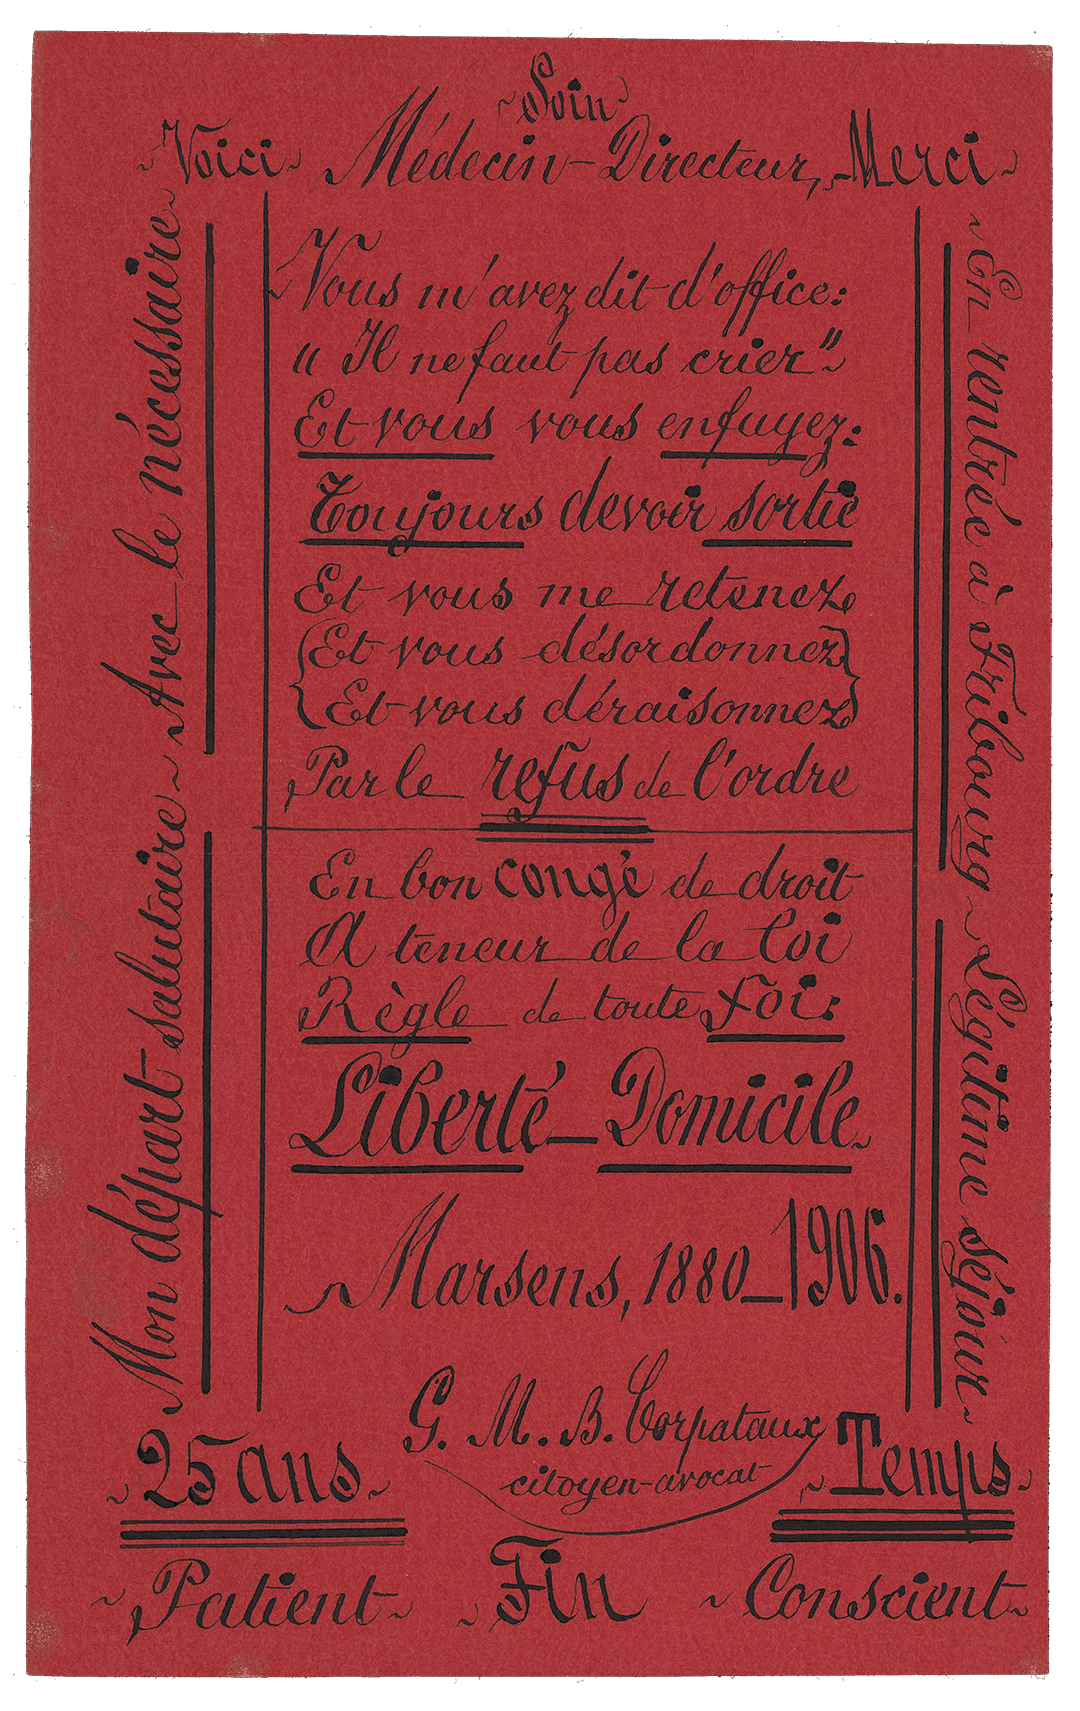 ~ Soin ~
~ Voici ~ Médecin-Directeur, ~ Merci ~
Vous m'avez dit d'office:
"Il ne faut pas crier" ~
Et vous vous enfuyez:
Toujours devoir sortie
Et vous me retenez
{Et vous désordonnez}
{Et vous déraisonnez}
Par le refus de l'ordre
En bon congé de droit
A teneur de la loi
Règle de toute foi:
Liberté_Domicile.
~ Marsens, 1880_1906.
G. M. B. Corpataux
citoyen-avocat
Mon départ salutaire ~ Avec le nécessaire ~
~ En rentrée à Fribourg ~ Légitime séjour ~
~ 25 ans ~
~ Temps ~
~ Patient ~ ~ Fin ~ Conscient ~